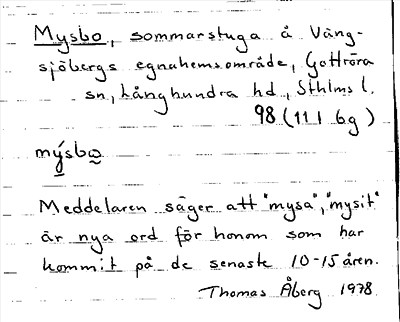 Mysbo, sommarstuga å Väng-
sjöbergs egnahemsområde, Gottröra
sn, Långhundra hd, Sthlms l.
98 (11I 6g)
mýsbo̬
Meddelaren säger att "mysa", "mysit"
är nya ord för honom som har
kommit på de senaste 10-15 åren.
Thomas Åberg 1978